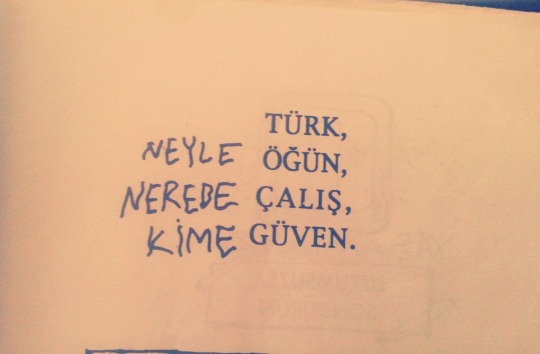 TÜRK,
NEYLE ÖĞÜN,
NEREDE ÇALIŞ,
KİME GÜVEN.